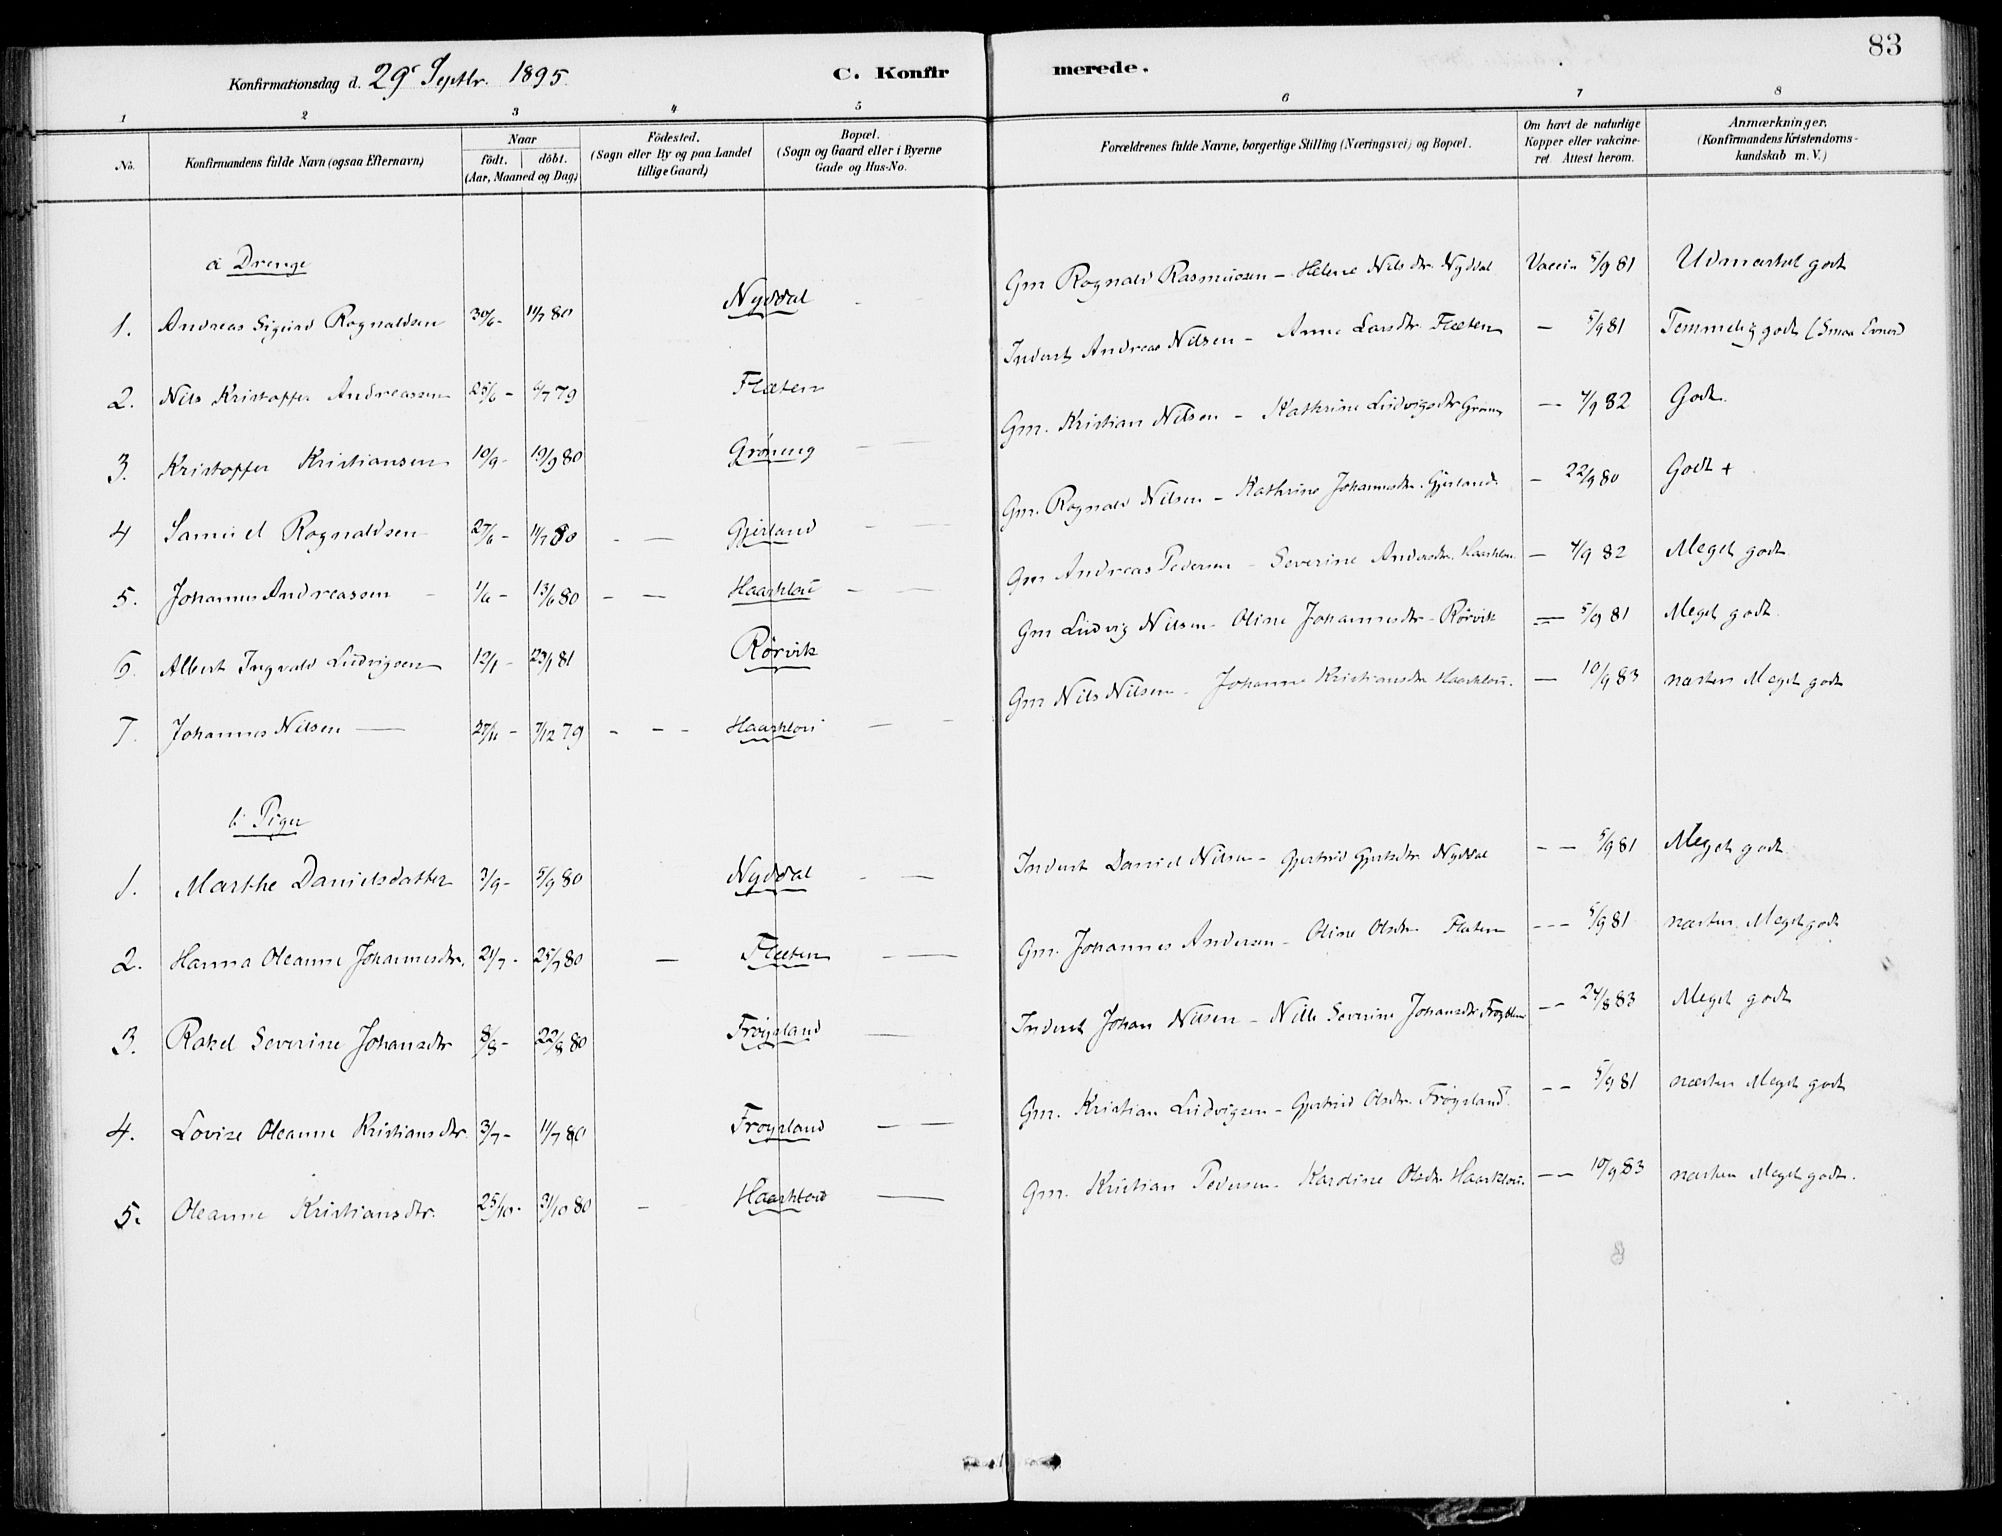 83
Konfirmationsdag d. 29de Septbr. 1895.
C. Konfirmerede.
1 2 3 4 5 6 7 8
No.
Konfirmandens fulde Navn (ogsaa Efternavn)
Naar
födt. döbt.
(Aar, Maaned og Dag)
Födested.
(Sogn eller By og paa Landet
tillige Gaard)
Bopæl.
(Sogn og Gaard eller i Byerne
Gade og Hus-No.
Forældrenes fulde Navne, borgerlige Stilling (Næringsvei) og Bopæl.
Om havt de naturlige
Kopper eller vakcine-
ret. Attest herom.
Anmærkninger.
(Konfirmandens Kristendoms-
kundskab m. V.)
a Drenge
1. Andreas Sigurd Rognaldsen 30/6- 11/7 80 Nyddal Gm Rognald Rasmussen - Helene Nilsdtr. Nyddal Vaccin 5/9 81 Udmærket godt
2. Nils Kristoffer Andreassen 25/6- 6/7 79 Flæten Inderst Andreas Nilsen - Anne Larsdtr. Flæten - 5/9 81 Temmelig godt (Smaa Evner)
3. Kristoffer Kristiansen 10/9- 19/9 80 Gröning - - Gm. Kristian Nilsen - Kathrine Ludvigsdtr Gröning - 4/9 82 Godt.
4 Samuel Rognaldsen 27/6- 11/7 80 - - Gjerland - - Gm. Rognald Nilsen - Kathrine Johannesdtr. Gjerland. - 22/9 80 Godt +
5. Johannes Andreassen - 1/6- 13/6 80 - - Haarklou - - Gm Andreas Pedersen - Severine Andersdtr. Haarklou. - 4/9 82 Meget godt
6. Albert Ingvald Ludvigsen 12/1- 23/1 81 Rörvik Gm Ludvig Nilsen - Oline Johannesdtr - Rörvik - 5/9 81 Meget godt
7. Johannes Nilsen - 27/11- 7/12 79 - - - Haarklou - - Gm Nils Nilsen - Johanne Kristiansdtr Haarklou. - 10/9 83 næsten Meget godt
b Piger
1. Marthe Danielsdatter 3/9- 5/9 80 Nyddal - - Inderst Daniel Nilsen - Gjertrud Gjertsdtr. Nyddal - - 5/9 81 Meget godt
2. Hanna Oleanne Johannesdtr. 21/7- 25/7 80 - Flæten - - Gm. Johannes Andersen - Oline Olsdtr. Flæten - - - 5/9 81 næsten Meget godt
3. Rakel Severine Johansdtr 8/8- 22/8 80 Fröysland - Inderst Johan Nilsen - Nille Severine Johansdtr. - - 24/8 83 Meget godt
4. Lovise Oleanne Kristiansdtr. 3/7- 11/7 80 Fröysland - - Gm. Kristian Ludvigsen - Gjertrud Olsdtr. Fröysland. - - 5/9 81 næsten Meget godt
5. Oleanne Kristiansdtr. 25/10- 31/10 80 - Haarklou - Gm. Kristian Pedersen - Karoline Olsdtr. Haarklou. - - 10/9 83 næsten Meget godt.